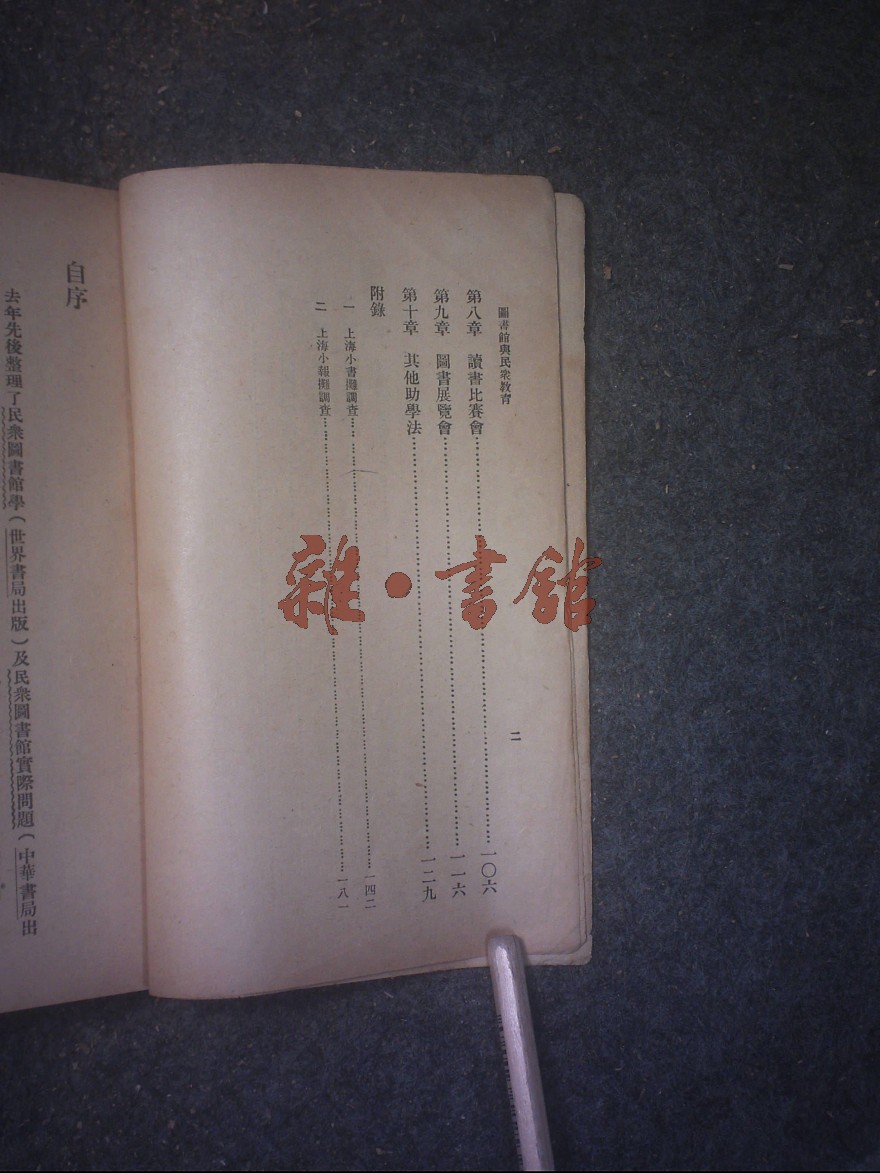 圖書館與民衆教育
二
第八章 讀書比賽會……一〇六
第九章 圖書展覽會……一一六
第十章 其他助學法……一二九
附錄
一 上海小書攤調查……一四二
二 上海小報攤調查……一八一
自序
去年先後整理了民衆圖書館學(世界書局出版)及民衆圖書館實際問題(中華書局出
雜·書館